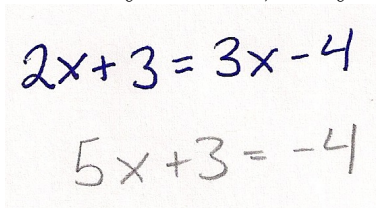 2x+3=3x-4
5x+3=-4